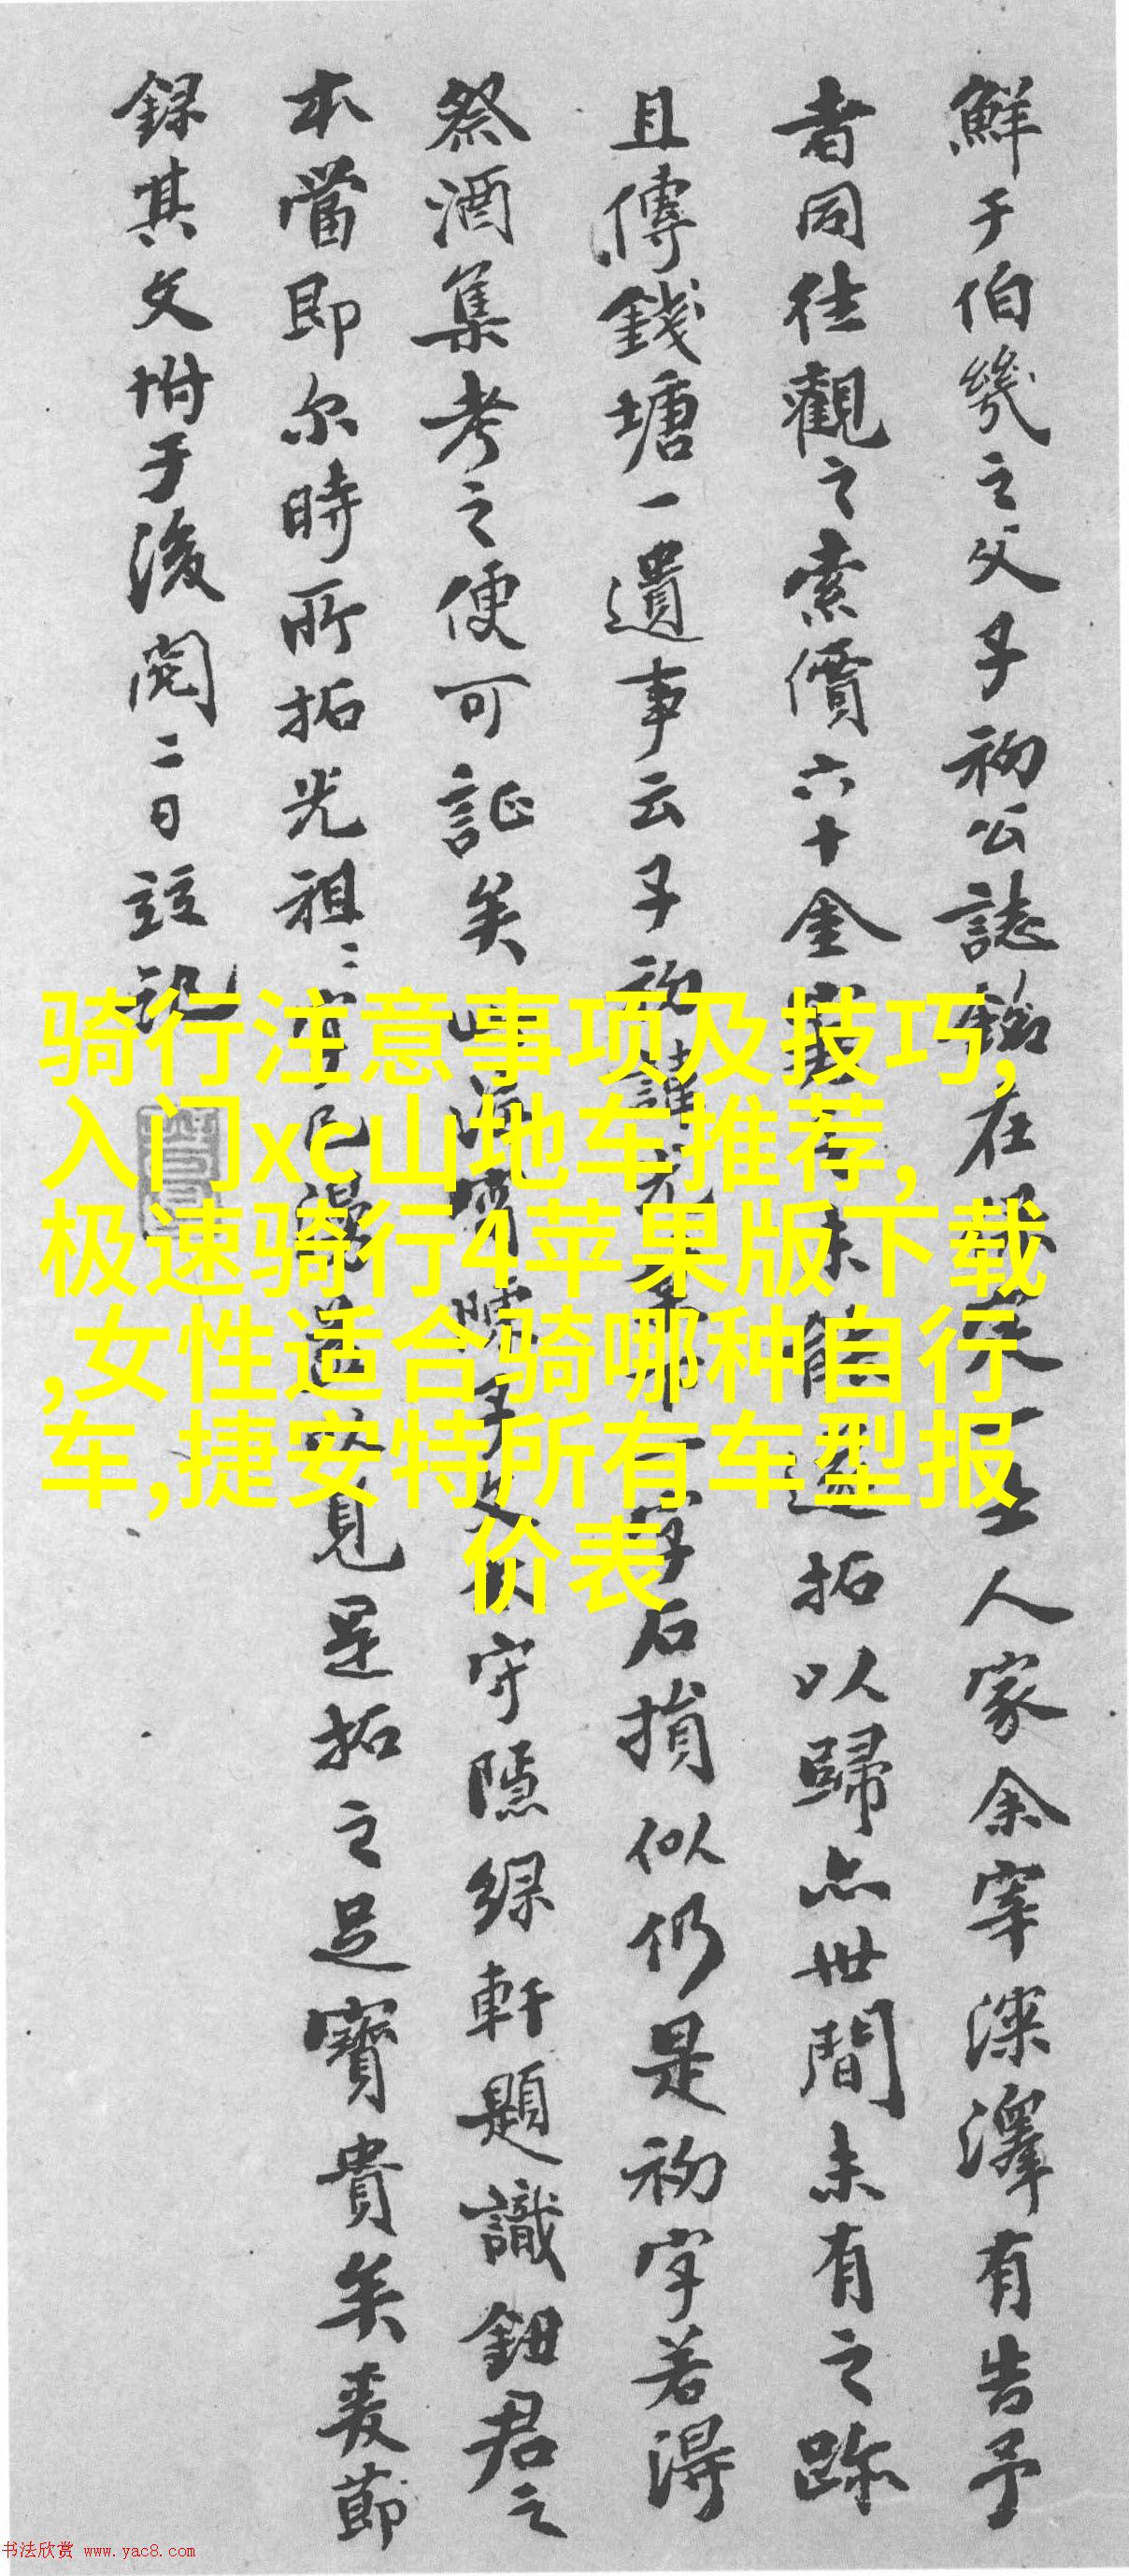 鮮于伯幾之父子初公誌銘在
人家余宰溧澤有告予
者同往觀之索價六十金
未能遂拓以歸亦世間未有之跡
且傳錢塘一遺事云子初諱光
字石損似仍是初字若得
祭酒集考之便可証矣
守隱綠軒題識鈕君之
本當即尔時所拓光祖
見是拓之足寶貴矣爰節
錄其文坿于後閏二日註記
骑行注意事项及技巧,
入门xc山地车推荐,
极速骑行4苹果版下载
,女性适合骑哪种自行
车,捷安特所有车型报
价表
书法欣赏 www.yac8.com